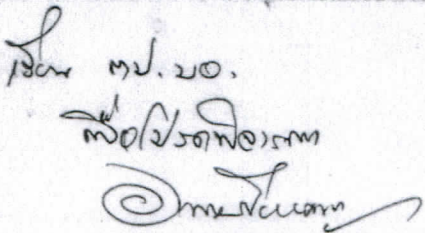 เรียน ตป.บอ.
เพื่อโปรดพิจารณา